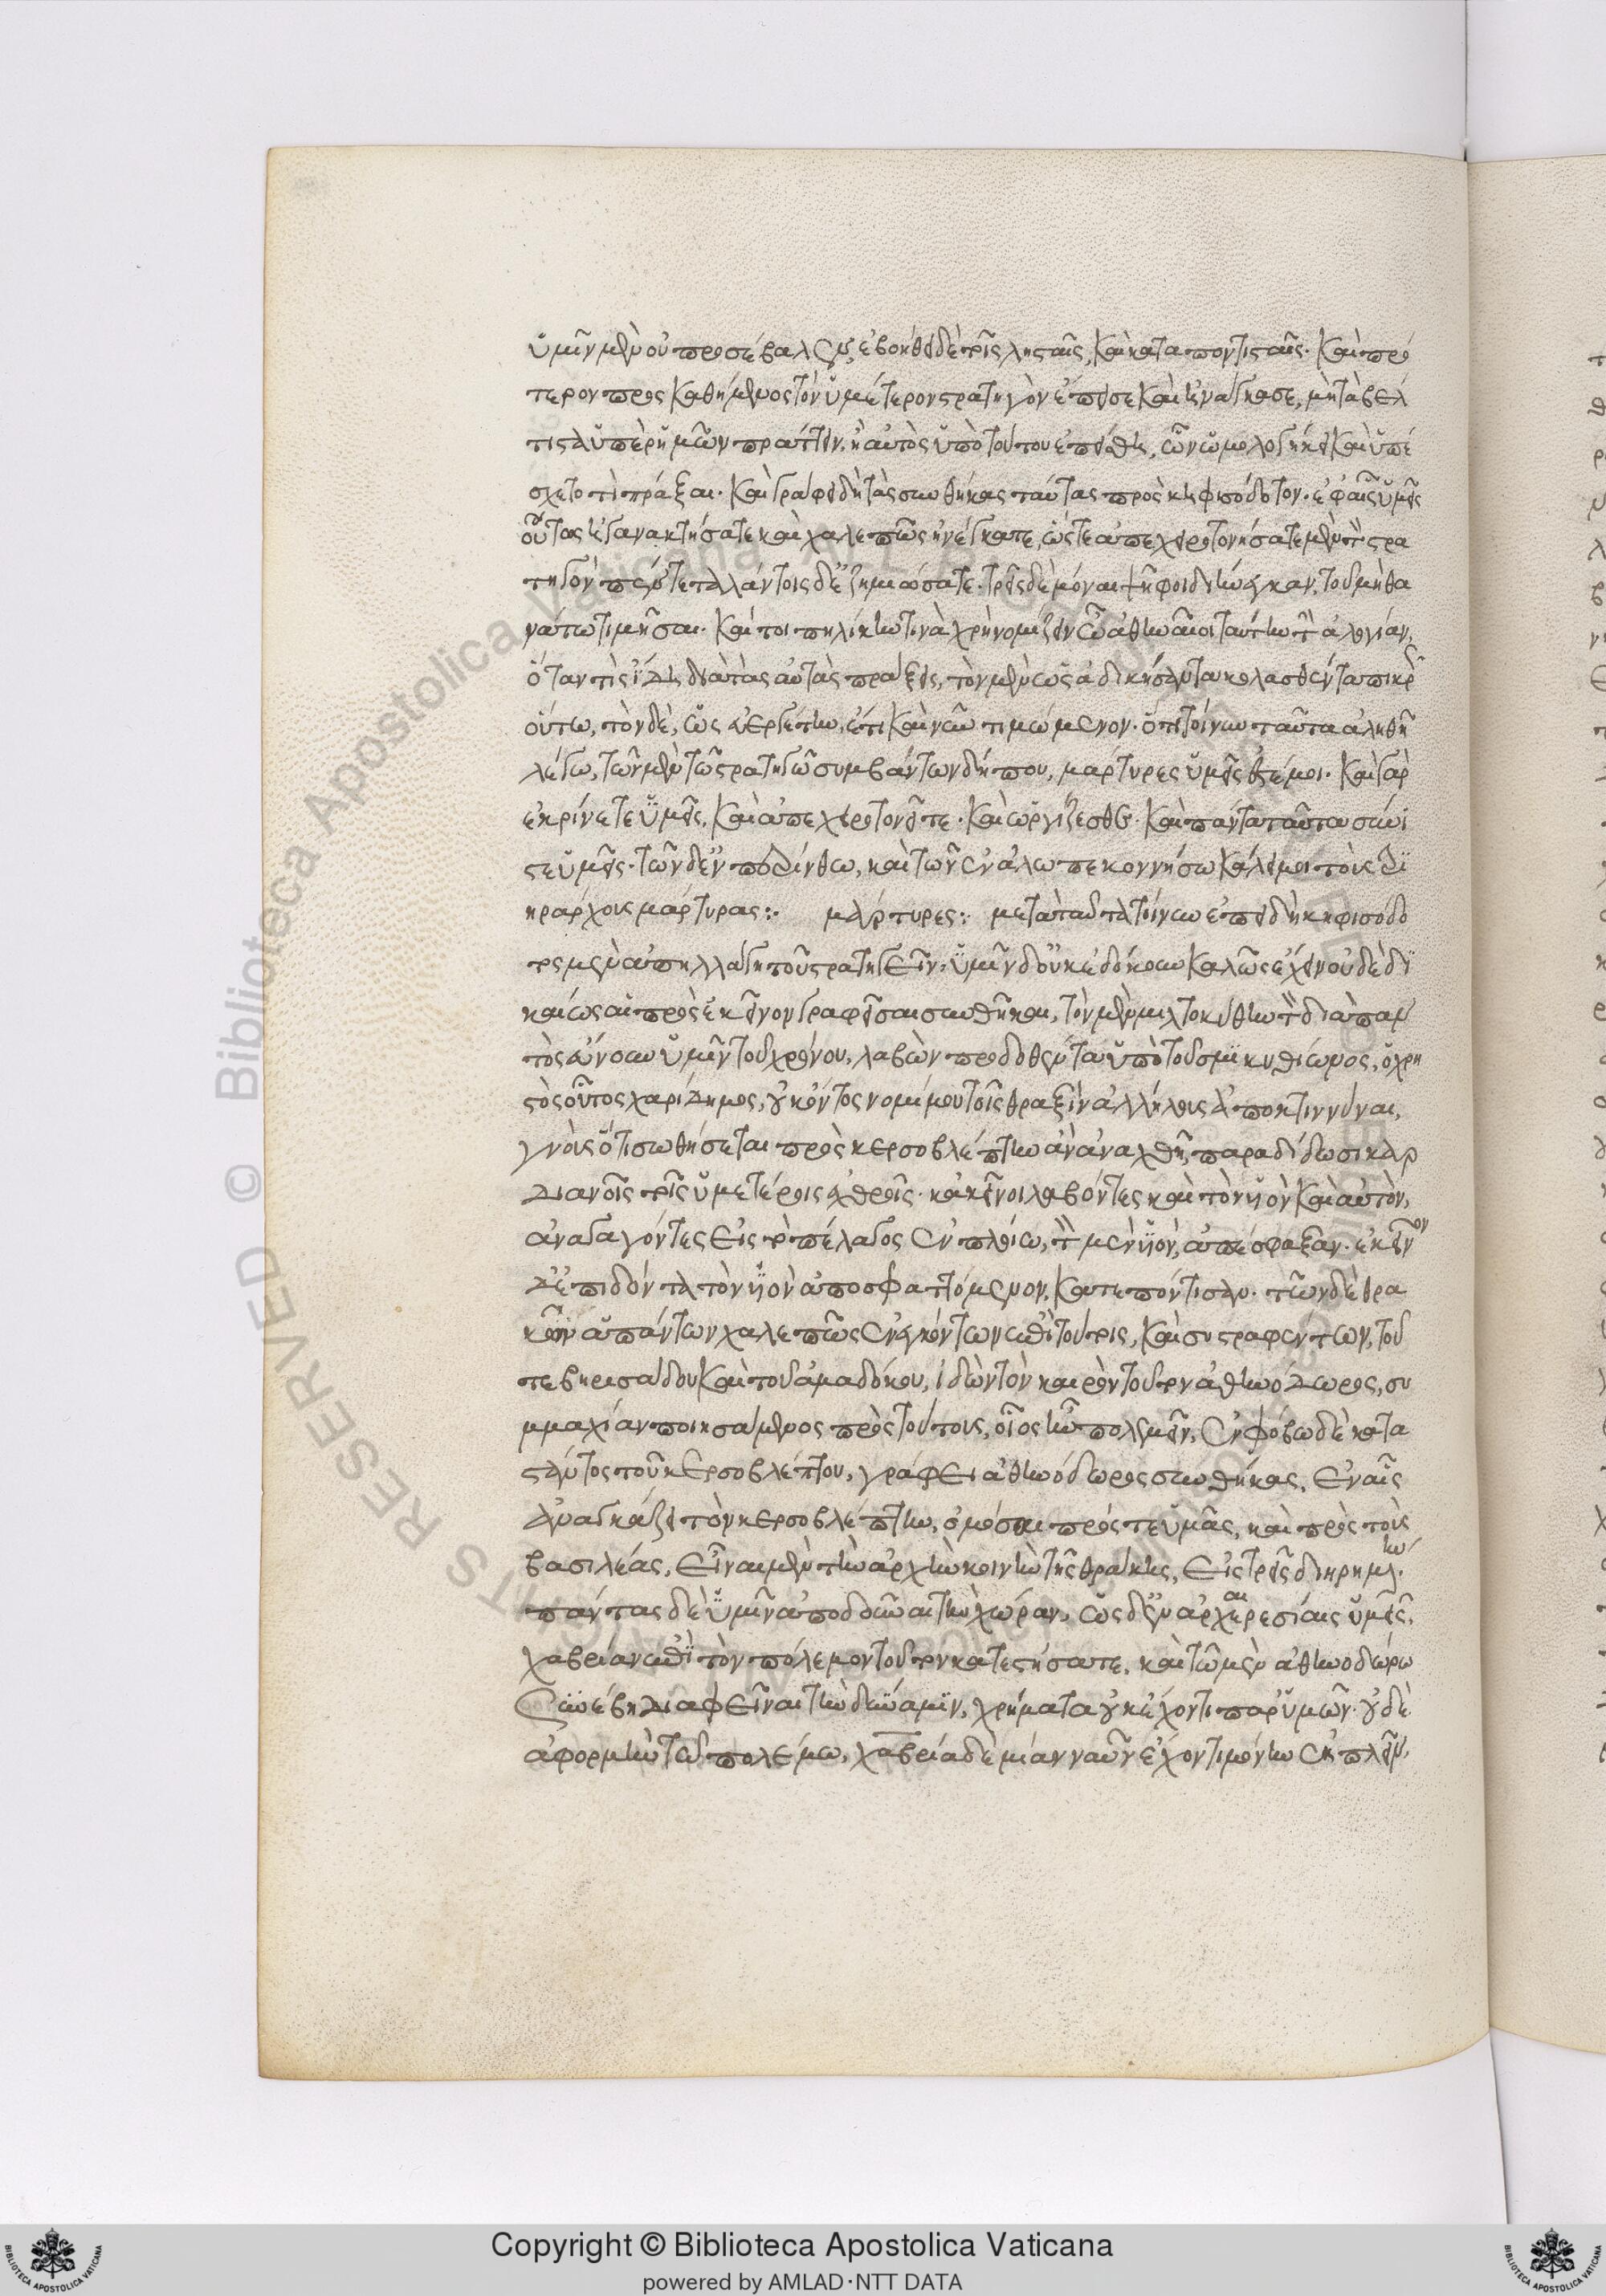 ὑμῖν μὲν οὐ προσέβαλεν, ἐβοήθει δὲ τοῖς λῃσταῖς, καὶ καταποντισταῖς· καὶ πρό
τερον προσκαθήμενος τὸν ὑμέτερον στρατηγὸν ἔπεισε καὶ ἠνάγκασε, μὴ τὰ βέλ
τιστα ὑπὲρ ἡμῶν πράττειν, ἢ αὐτὸς ὑπὸ τούτου ἐπείσθη, ὧν ὡμολογήκει καὶ ὑπέ
σχετό τι πρᾶξαι. καὶ γράφει δὴ τὰς συνθήκας ταύτας πρὸς κηφισόδοτον. ἐφ' αἷς ὑμεῖς
οὕτως ἠγανακτήσατε καὶ χαλεπῶς ἠνέγκατε, ὥστε ἀπεχειροτονήσατε μὲν τὸν στρα
τηγὸν πέντε ταλάντοις δ' ἐζημιώσατε· τρεῖς δὲ μόναι ψῆφοι διήνεγκαν, τοῦ μὴ θα
νάτω τιμῆσαι. καίτοι πηλίκην τινὰ χρὴ νομίζειν ὦ ἄνδρες ἀθηναῖοι ταύτην τὴν ἀλογίαν,
ὅταν τὶς ἴδη διὰ τὰς αὐτὰς πράξεις, τὸν μὲν ὡς ἀδικήσαντα κολασθέντα πικρῶς
οὕτω, τὸν δὲ, ὡς εὐεργέτην, ἔτι καὶ νῦν τιμώμενον. ὅτι τοίνυν ταῦτα ἀληθῆ
λέγω, τῶν μὲν τῷ στρατηγῷ συμβάντων δήπου, μάρτυρες ὑμεῖς ἐστέ μοι. καὶ γὰρ
ἐκρίνετε ὑμεῖς, καὶ ἀπεχειροτονεῖτε. καὶ ὠργίζεσθε. καὶ πάντα ταῦτα σύνι
στε ὑμεῖς. τῶν δ' ἐν περίνθω, καὶ τῶν ἐν ἀλωπεκοννήσω κάλει μοι τοὺς τρι
ηράρχους μάρτυρας:· μάρτυρες:· μετὰ ταῦτα τοίνυν ἐπειδὴ κηφισόδο
τος μὲν ἀπηλλάγη τοῦ στρατηγεῖν. ὑμῖν δ' οὐκ ἐδόκουν καλῶς ἔχειν οὐδὲ δι
καίως αἱ πρὸς ἐκεῖνον γραφεῖσαι συνθῆκαι, τὸν μὲν μιλτοκύθην τὸν διὰ παν
τὸς εὔνουν ὑμῖν τοῦ χρόνου, λαβὼν προδοθέντα ὑπὸ τοῦ σμικυθίωνος, ὁ χρη
στὸς οὗτος χαρίδημος, οὐκ ὄντος νομίμου τοῖς θραξὶν ἀλλήλους ἀποκτιννύναι,
γνοὺς ὅτι σωθήσεται πρὸς κερσοβλέπτην ἂν ἀναχθῆ, παραδίδωσι καρ
διανοῖς τοῖς ὑμετέροις ἐχθροῖς. κἀκεῖνοι λαβόντες καὶ τὸν υἱὸν καὶ αὐτὸν,
ἀναγαγόντες εἰς τὸ πέλαγος ἐν πλοίω, τὸν μὲν υἱὸν, ἀπέσφαξαν. ἐκεῖνον
δ' ἐπιδόντα τὸν υἱὸν ἀποσφαττόμενον, κατεπόντισαν. τῶν δὲ θρα
κῶν ἁπάντων χαλεπῶς ἐνεγκόντων ἐπὶ τούτοις, καὶ συστραφέντων, τοῦ
τε βηρισάδου καὶ τοῦ ἀμαδόκου, ἰδὼν τὸν καιρὸν τοῦτον ἀθηνόδωρος, συ
μμαχίαν ποιησάμενος πρὸς τούτους, οἷος ἦν πολεμεῖν, ἐν φόβω δὲ κατα
στάντος τοῦ κερσοβλέπτου, γράφει ἀθηνόδωρος συνθήκας, ἐν αἷς
ἀναγκάζει τὸν κερσοβλέπτην, ὀμόσαι πρός τε ὑμᾶς, καὶ πρὸς τοὺς
βασιλέας, εἶναι μὲν τὴν ἀρχὴν κοινὴν τῆς θράκης, εἰς τρεῖς διῃρημένην.
πάντας δὲ ὑμῖν ἀποδοῦναι τὴν χώραν, ὡς δ' ἐν ἀρχαιρεσίαις ὑμεῖς,
χαβρίαν ἐπὶ τὸν πόλεμον τοῦτον κατεστήσατε, καὶ τῷ μὲν ἀθηνοδώρω
συνέβη διαφεῖναι τὴν δύναμιν, χρήματα οὐκ ἔχοντι παρ' ὑμῶν. οὐδὲ
ἀφορμὴν τῷ πολέμω, χαβρία δὲ μίαν ναῦν ἔχοντι μόνην ἐκπλεῖν,